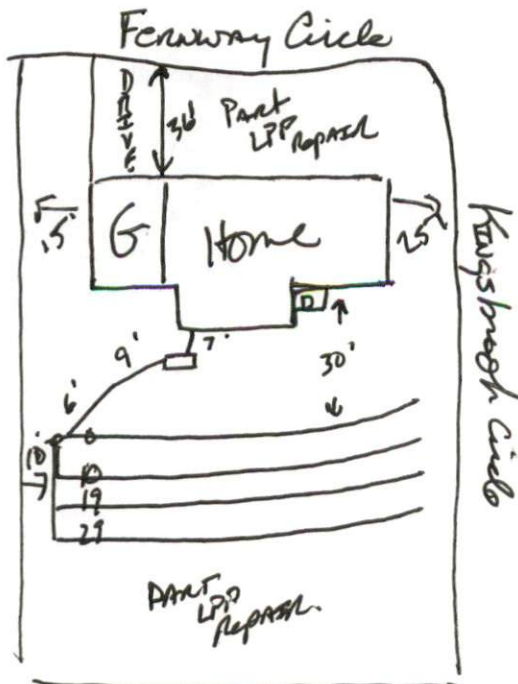 Fernway Circle
DRIVE
36'
PART
LPP
Repair
15'
G
Home
25'
Kingsbrough Circle
D
7'
9'
30'
6'
0
10'
10
19
29
PART
LPP
Repair.